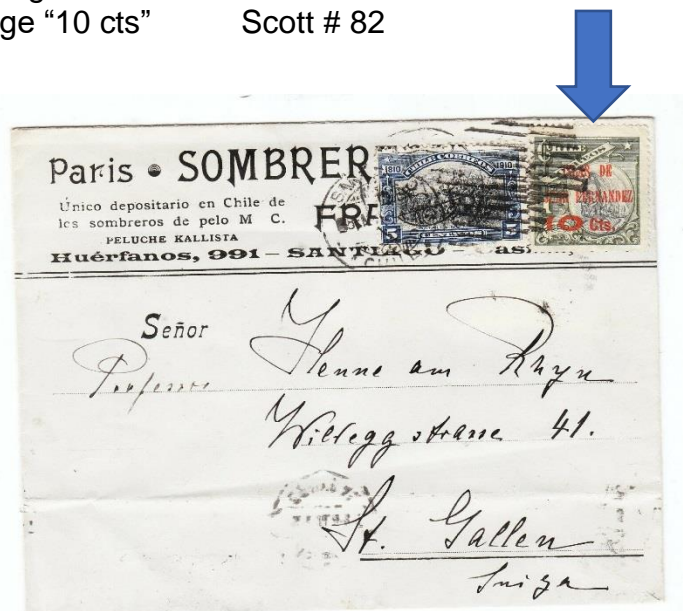 ge “10 cts” Scott # 82
Paris • SOMBRER
Único depositario en Chile de
los sombreros de pelo M C.
PELUCHE KALLISTA
Huérfanos, 991 – SANTIAGO –
1810 CHILE CORREOS 1910
5 CENTAVOS 5
ISLAS DE
JUAN FERNANDEZ
10 Cts.
Señor
Professor Henne am Rhyn
Wildeggstrasse 41.
St. Gallen
Suiza